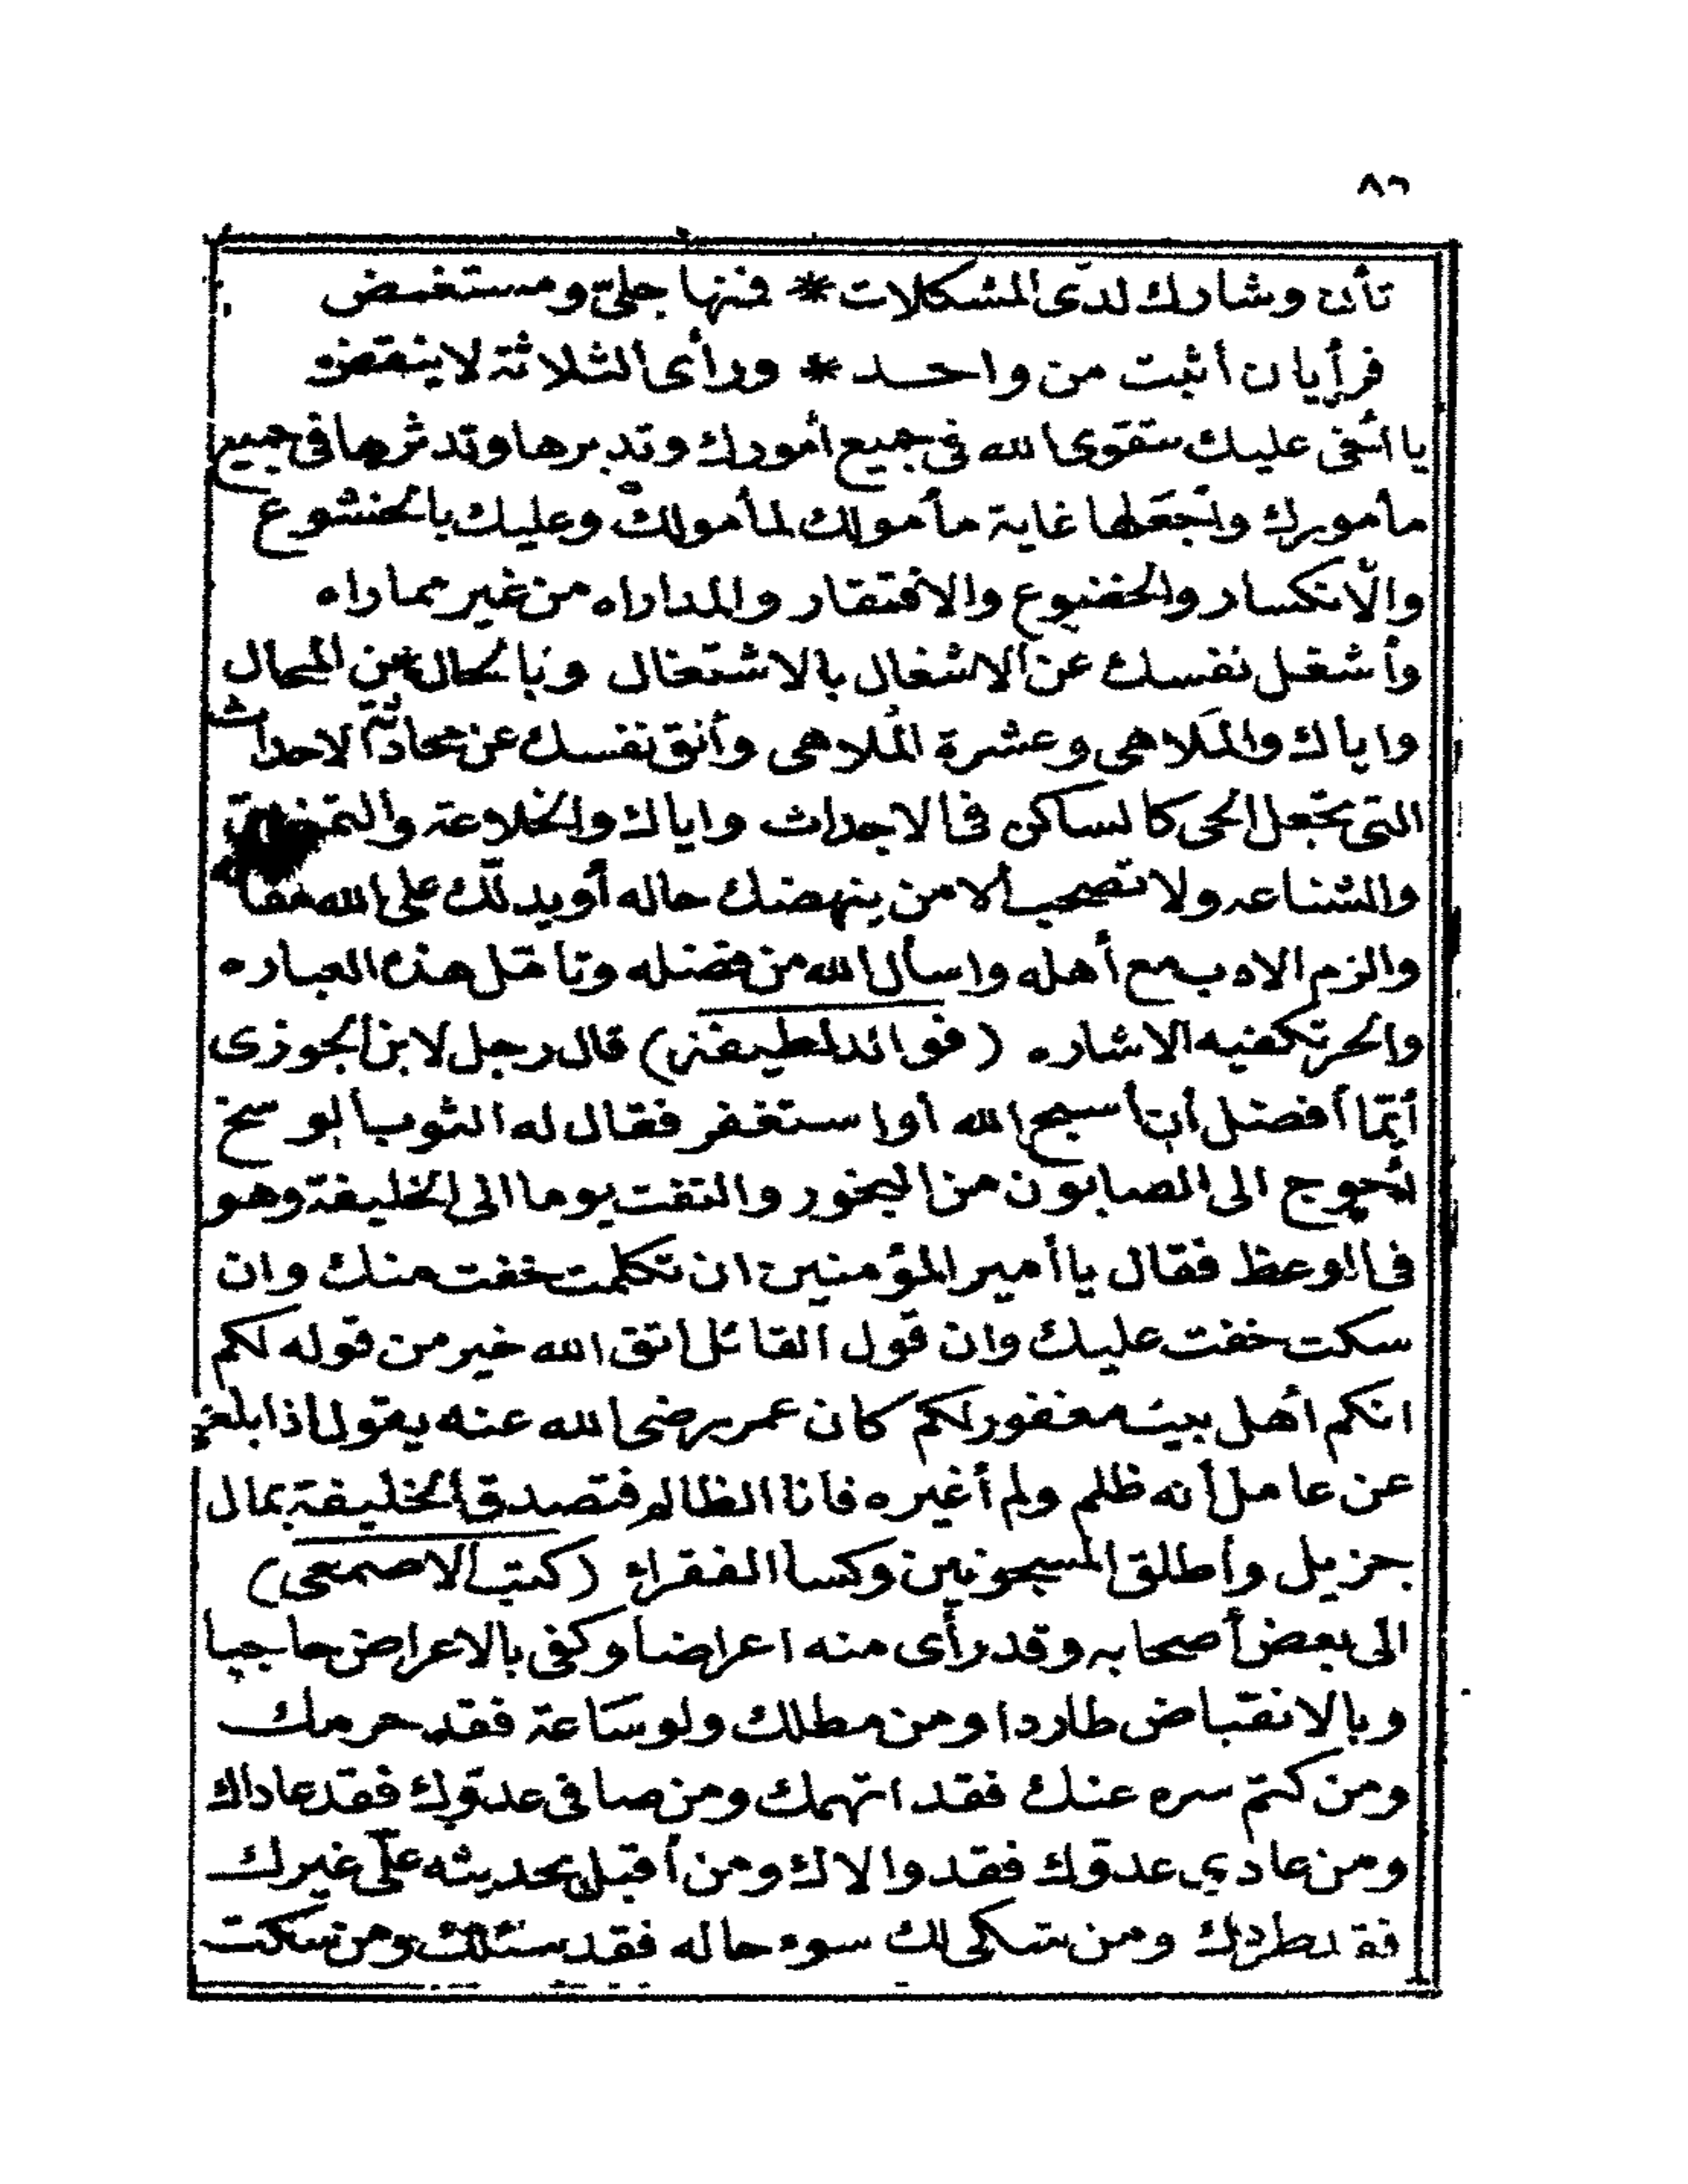 ٨٦
تأن وشارك لدى المشكلات * فمنها جلىّ ومستغمض
فرأيان أثبت من واحد * ورأى الثلاثة لا ينقض
يا أخى عليك بتقوى الله فى جميع أمورك وتدبرها وتدثرها فى جميع
مأمورك واجعلها غاية مأمولك لمأمولك وعليك بالخشوع
والانكسار والخضوع والافتقار والمداراه من غير مماراه
وأشغل نفسك عن الاشغال بالاشتغال وبالحال عن المحال
واياك والملاهى وعشرة الملاهى وأنق نفسك عن محادثة الاحداث
التى تجعل الحى كالساكن فى الاجداث واياك والخلاعة
والشناعه ولا تصحب ألا من ينهضك حاله أو يدلك على الله
والزم الادب مع أهله واسأل الله من فضله وتأمّل هذه العباره
والحر تكفيه الاشاره (فوائد لطيفة) قال رجل لابن الجوزى
أيّما أفضل أن أسبح الله أو استغفر فقال له الثوب الوسخ
أحوج الى الصابون من البخور والتفت يوما الى الخليفة وهو
فى الوعظ فقال يا أمير المؤمنين ان تكلمت خفت منك وان
سكت خفت عليك وان قول القائل اتق الله خير من قوله لكم
انكم أهل بيت مغفور لكم كان عمر رضى الله عنه يقول اذا بلغنى
عن عامل أنه ظلم ولم أغيره فانا الظالم فتصدق الخليفة بمال
جزيل وأطلق المسجونين وكسا الفقراء (كتب الاصمعى)
الى بعض أصحابه وقد رأى منه اعراضا وكفى بالاعراض حاجبا
وبالانقباض طاردا ومن مطلك ولو ساعة فقد حرمك
ومن كتم سره عنك فقد اتهمك ومن صافى عدوّك فقد عاداك
ومن عادى عدوّك فقد والاك ومن أقبل بحديثه على غيرك
فقد طردك ومن شكى لك سوء حاله فقد سئلك ومن سكت